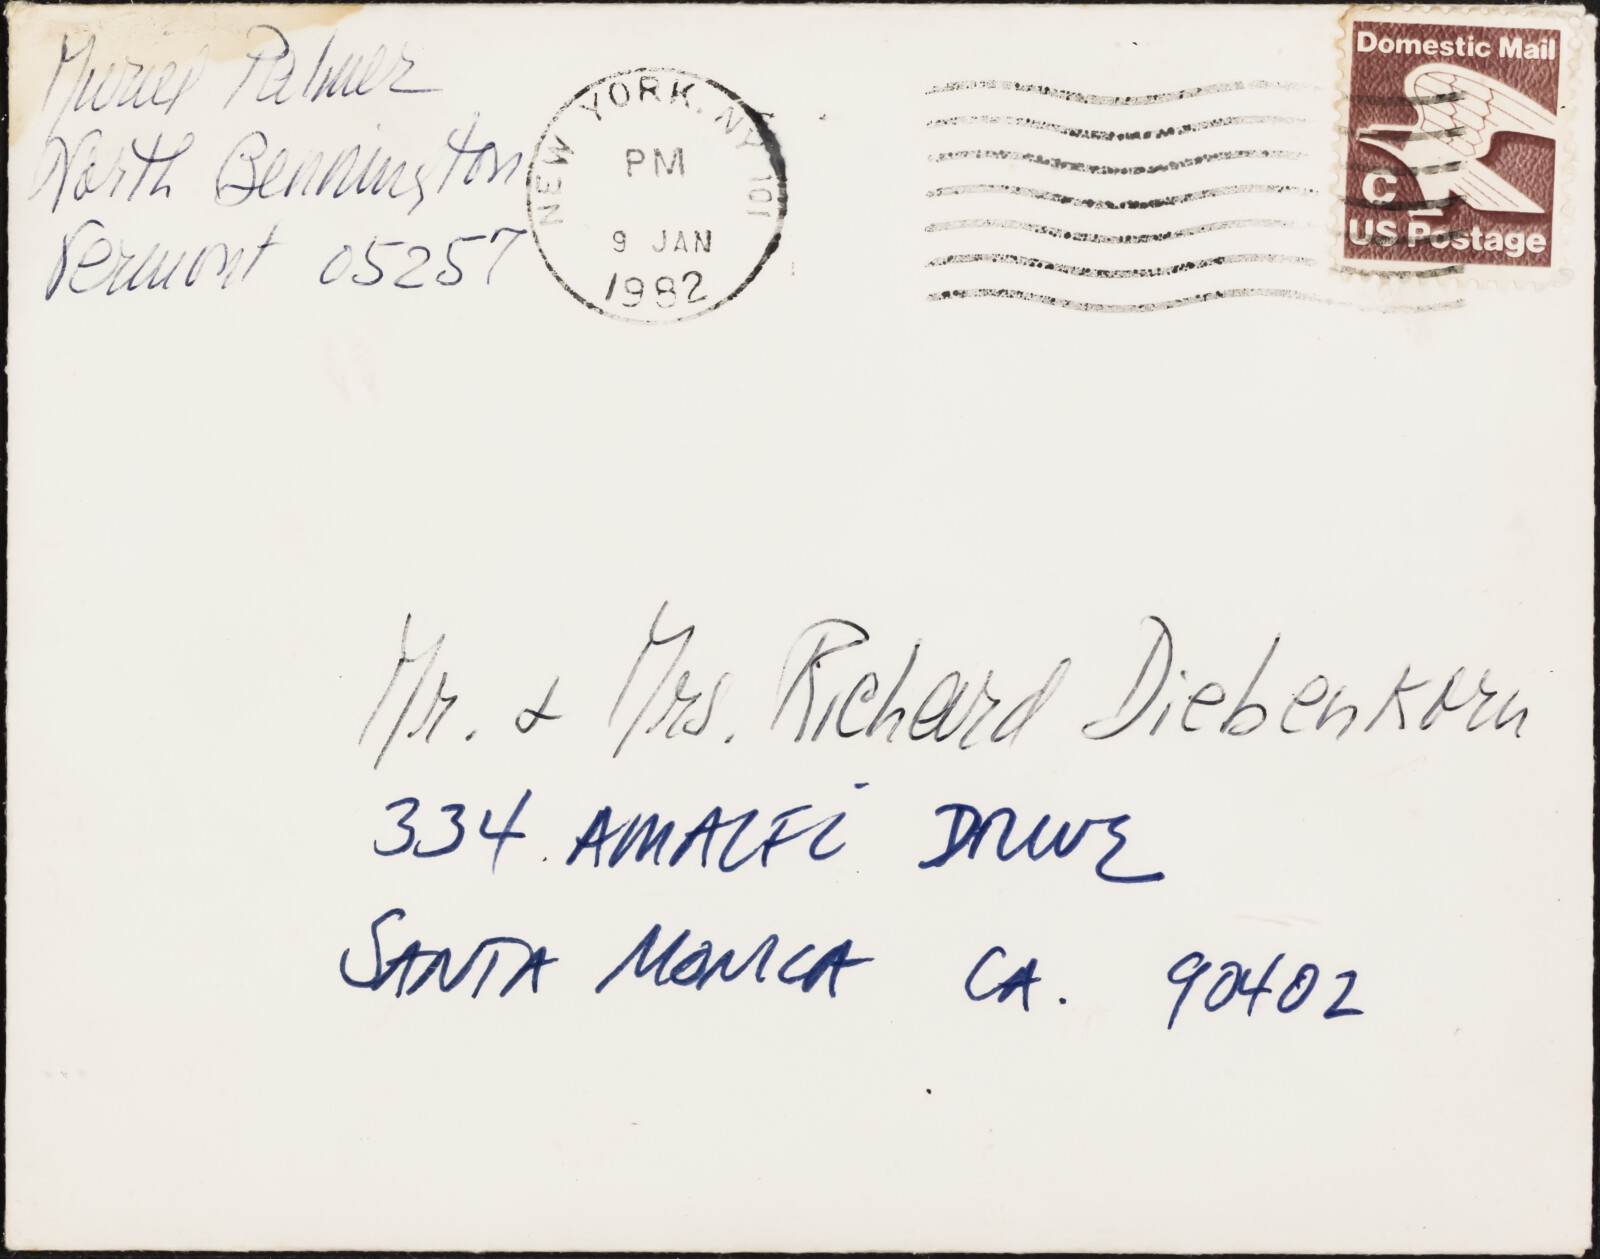 Muriel Palmer
North Bennington
Vermont 05257
NEW YORK, NY 101
PM
9 JAN
1982
Domestic Mail
C
US Postage
Mr. & Mrs. Richard Diebenkorn
334 AMALFI DRIVE
SANTA MONICA CA. 90402